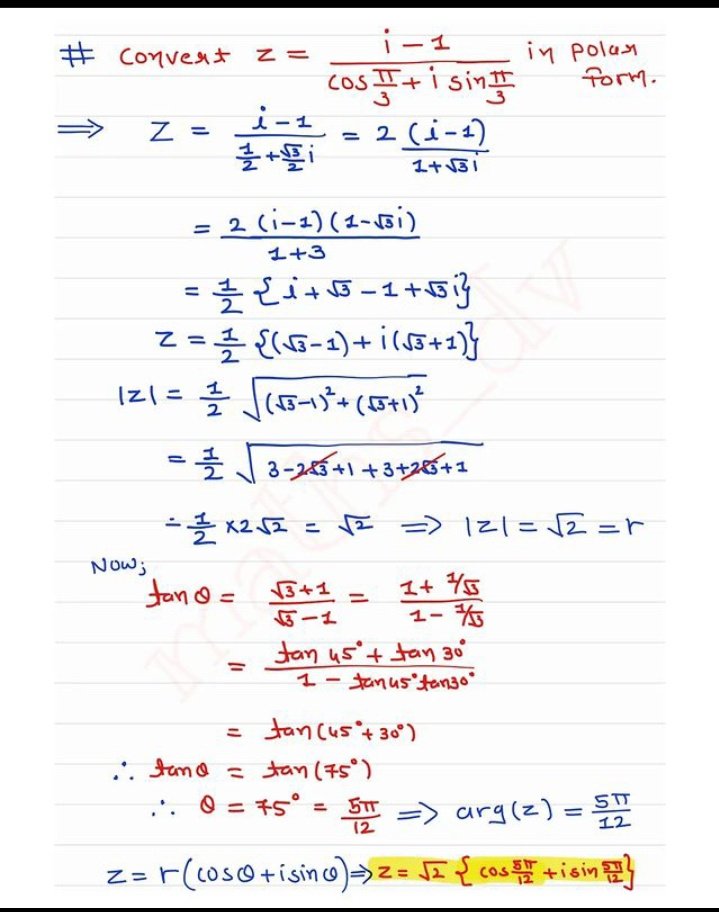 # Convert z = (i-1)/(cos π/3 + i sin π/3) in polar form.
⇒ Z = (i-1)/(1/2 + √3/2 i) = 2 (i-1)/(1+√3i)
= 2 (i-1)(1-√3i)/(1+3)
= 1/2 {i + √3 - 1 + √3i}
Z = 1/2 {(√3-1) + i(√3+1)}
|z| = 1/2 √((√3-1)² + (√3+1)²)
= 1/2 √(3-2√3+1+3+2√3+1)
= 1/2 × 2√2 = √2 ⇒ |z| = √2 = r
Now;
tan θ = (√3+1)/(√3-1) = (1+1/√3)/(1-1/√3)
= (tan 45° + tan 30°)/(1 - tan45° tan30°)
= tan(45°+30°)
∴ tanθ = tan(75°)
∴ θ = 75° = 5π/12 ⇒ arg(z) = 5π/12
z = r(cosθ + i sinθ) ⇒ z = √2 {cos 5π/12 + i sin 5π/12}
maths_dv